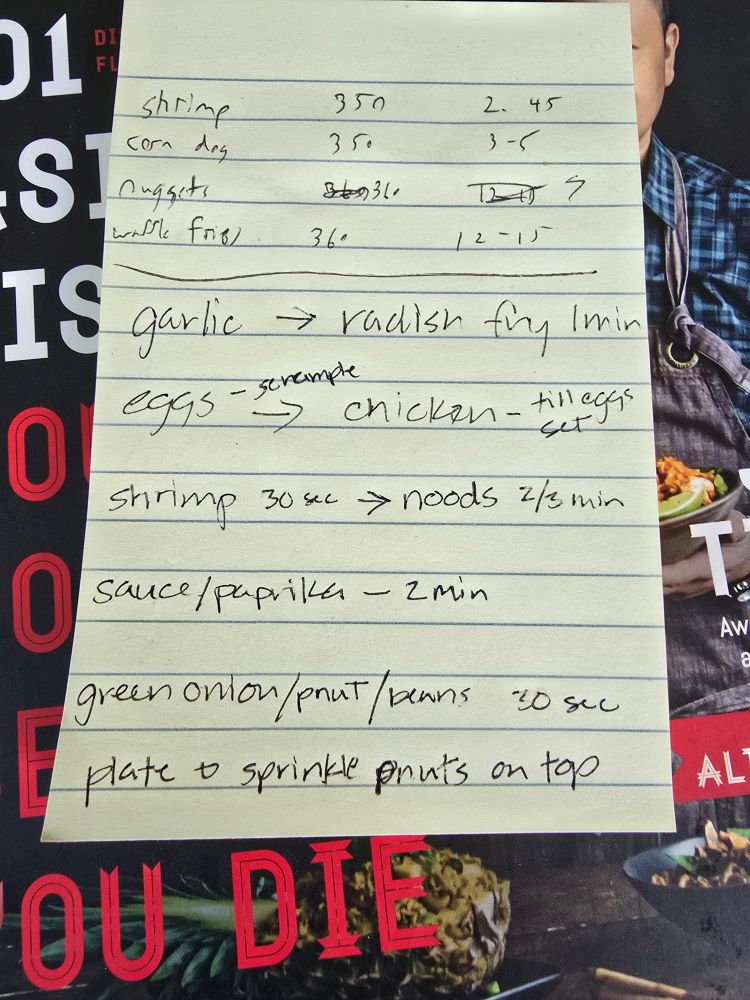 01
DI
FL
ASI
IS
shrimp 350 2.45
corn dog 350 3-5
nuggets 360
waffle fries 360 12-15
garlic → radish fry 1min
eggs - scrample → chicken - till eggs set
shrimp 30 sec → noods 2/3 min
sauce/paprika - 2 min
green onion/pnut/beans 30 sec
plate & sprinkle pnuts on top
OU
O
E
YOU DIE
T
AW
a
ALT